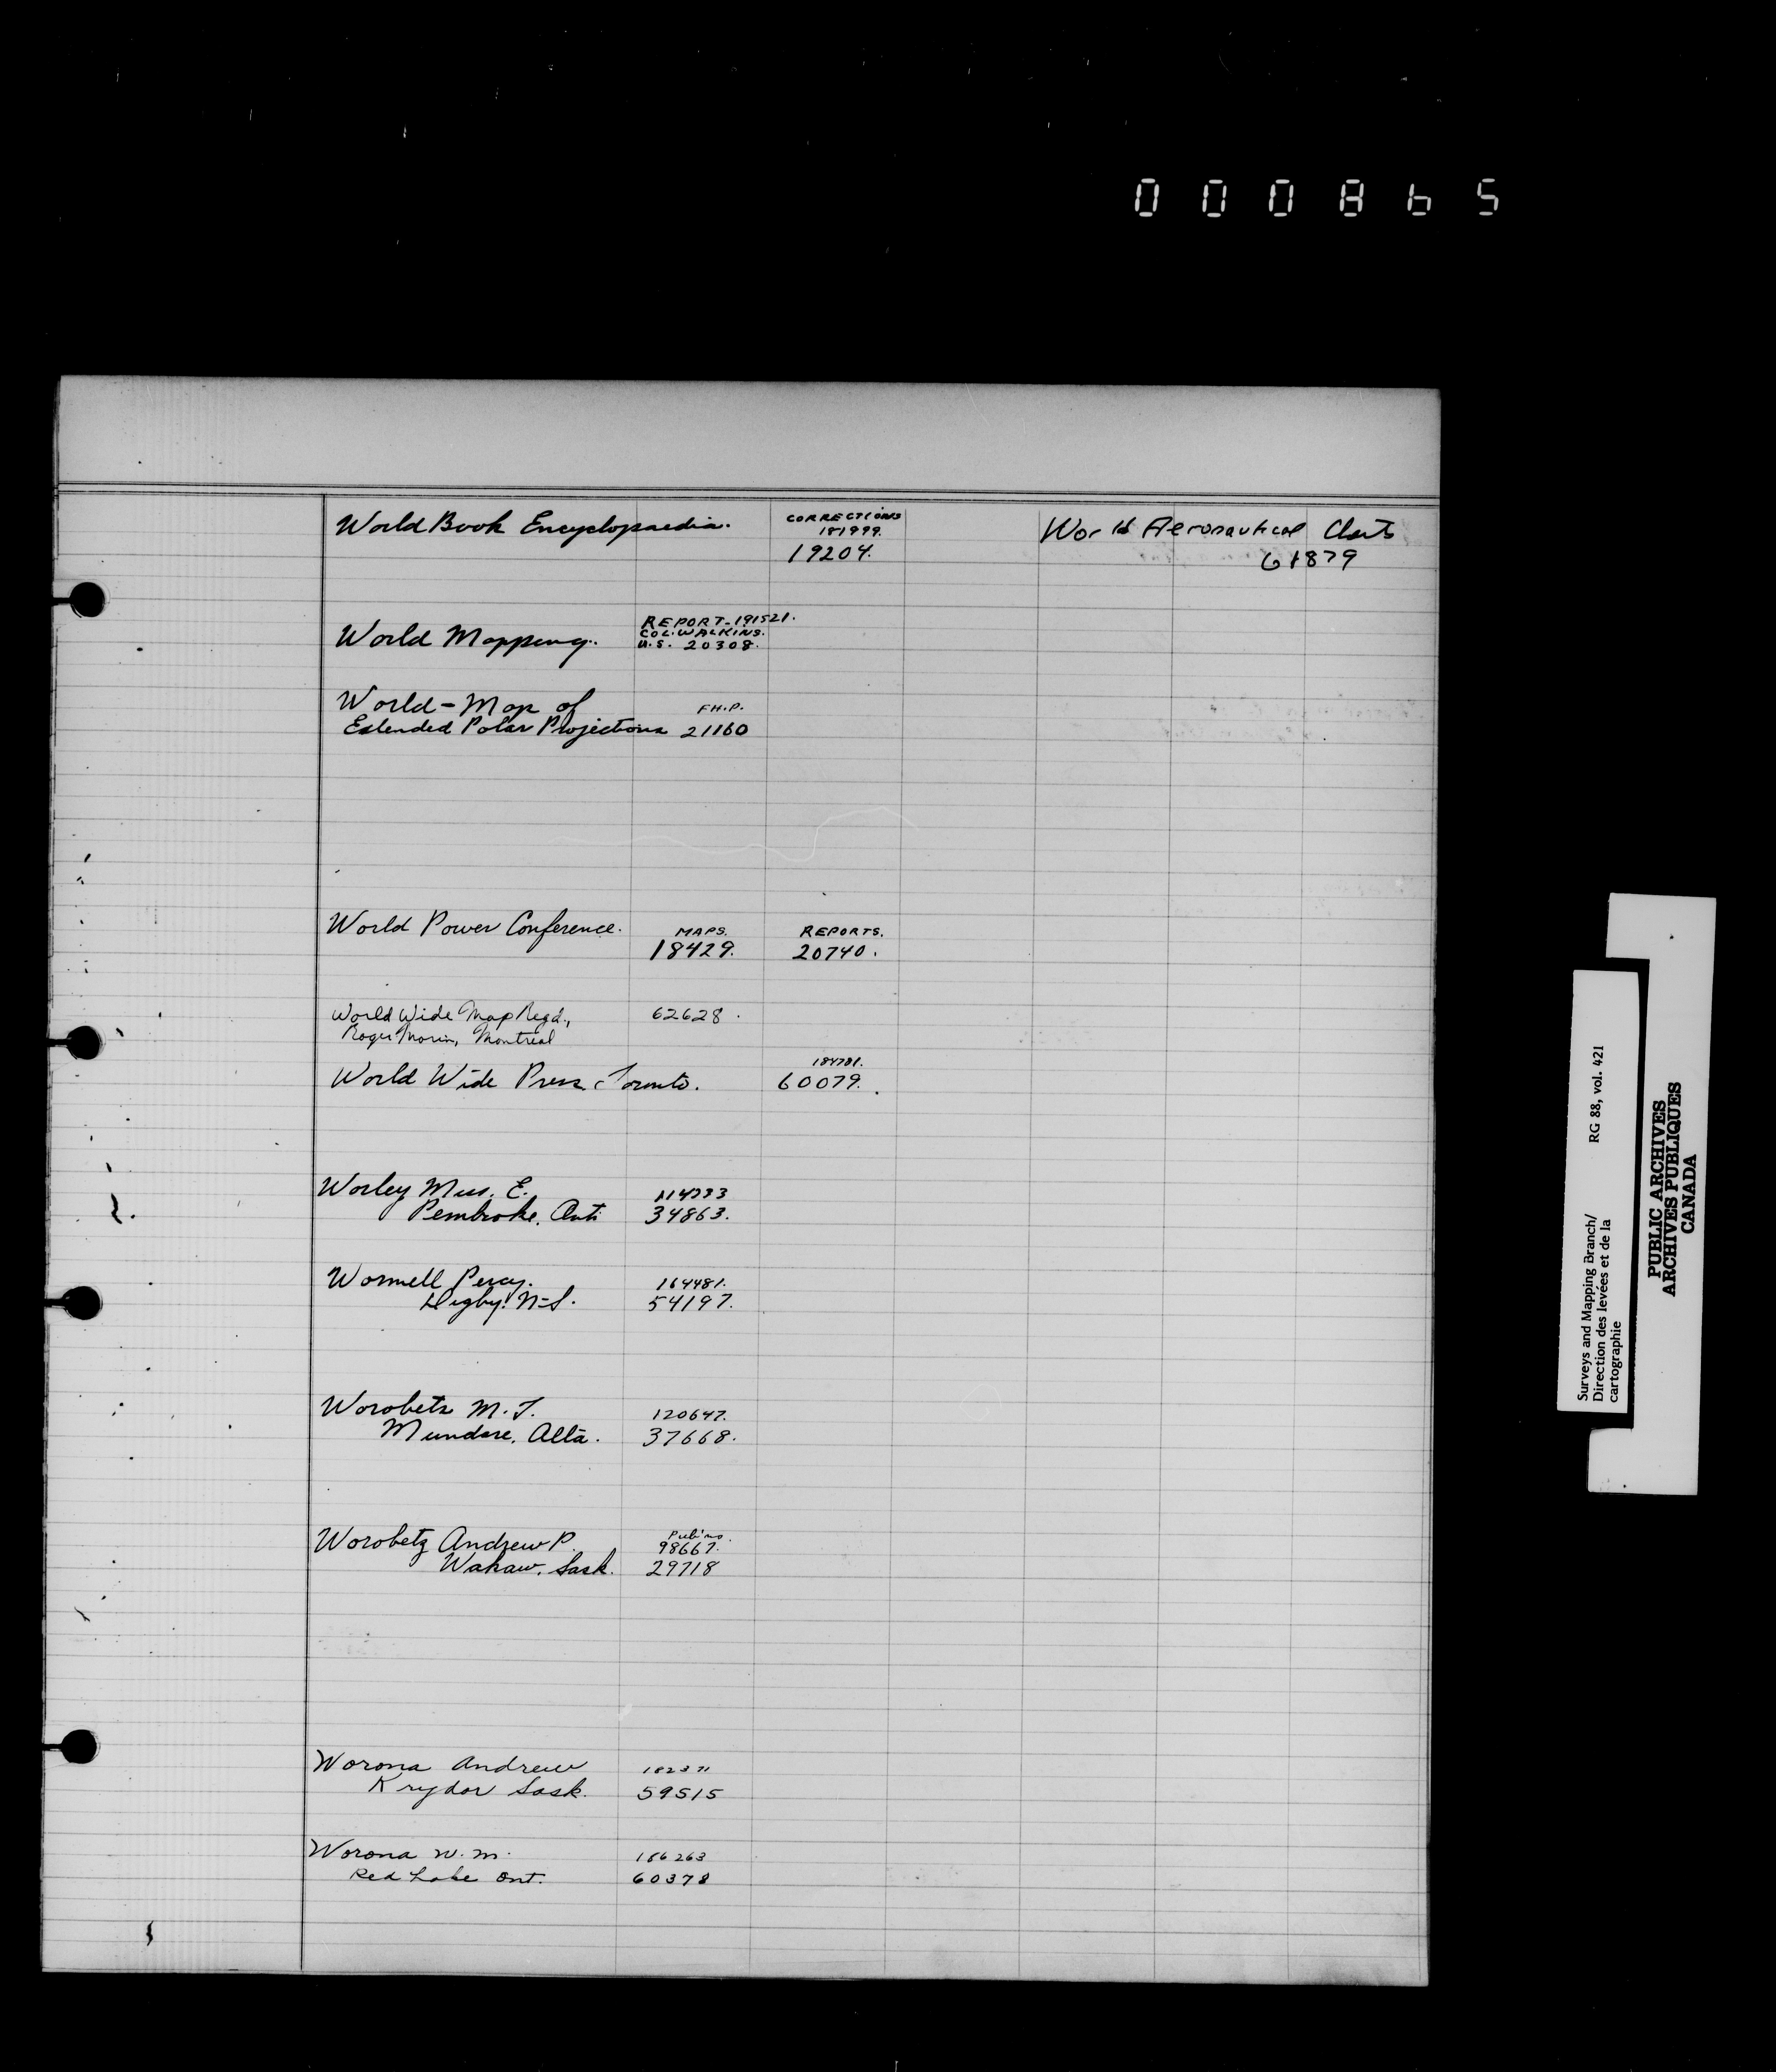 000865
World Book Encyclopaedia.
CORRECTIONS
181999.
19204.
World Aeronautical Charts
61879
World Mapping.
REPORT-191521.
COL. WALKINS.
U.S. 20308.
World-Map of
Extended Polar Projections
F.H.P.
21160
World Power Conference.
MAPS.
18429.
REPORTS.
20740.
World Wide Map Regd.,
Roger Morin, Montreal
62628.
World Wide Press, Toronto.
184781.
60079.
Worley E.
Pembroke, Ont.
34863.
Wormell Percy.
Digby. N-S.
164481.
54197.
Worobets M. T.
Mundare, Alta.
120647.
37668.
Worobetz Andrew P.
Wakaw, Sask.
98667.
29718
Worona Andrew
Krydor Sask.
59515
Worona W. M.
Red Lake Ont.
186263
60378
Surveys and Mapping Branch/
Direction des levées et de la
cartographie
RG 88, vol. 421
PUBLIC ARCHIVES
ARCHIVES PUBLIQUES
CANADA